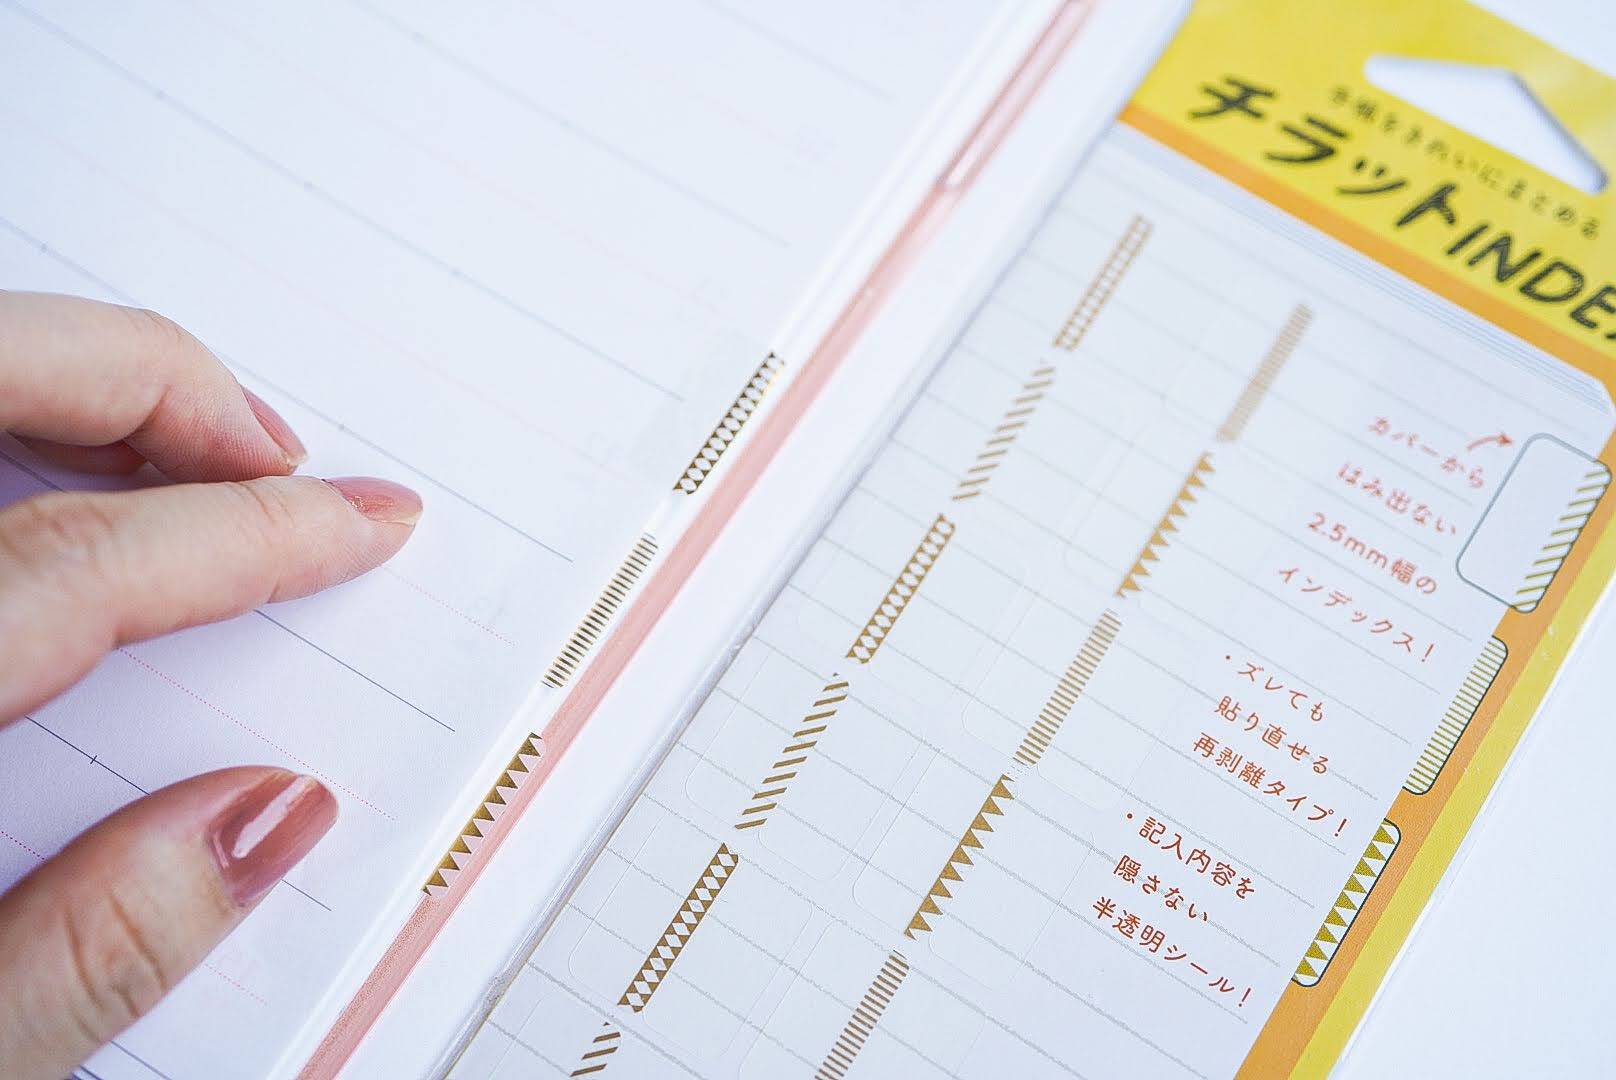 手帳をきれいにまとめる
チラットINDEX
カバーから
はみ出ない
2.5mm幅の
インデックス!
・ズレても
貼り直せる
再剥離タイプ!
・記入内容を
隠さない
半透明シール!